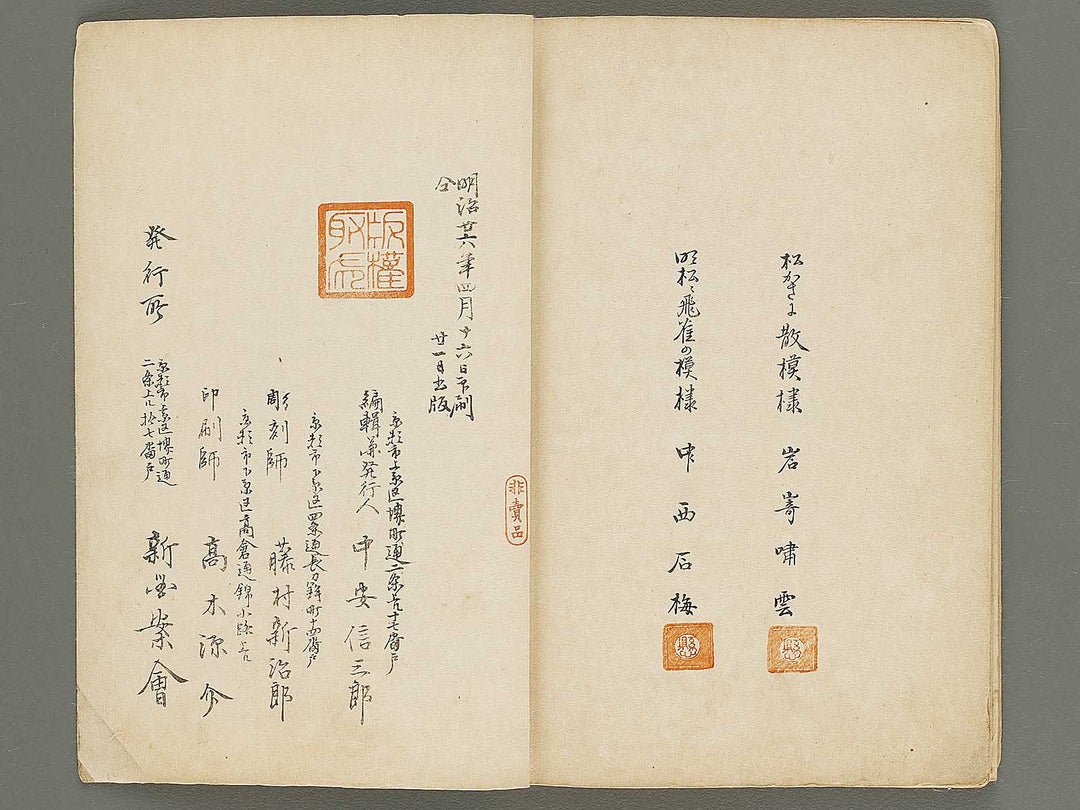 松かさに散模様 岩嵜嘯雲
明松ニ飛雀の模様 中西石梅
非賣品
明治廿六年四月十六日印刷
仝 廿一日出版
版權
京都市上京区堺町通二条上十七番戸
編輯兼発行人 中安信三郎
京都市下京区四条通長刀鉾町十四番戸
彫刻師 藤村新治郎
京都市下京区高倉通錦小路上ル
印刷師 髙木源介
発行所
京都市上京区堺町通
二条上ル拾七番戸
新図案會